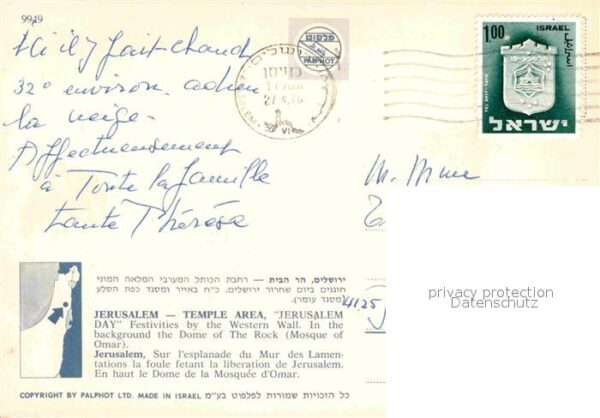 9949
פלפוט
PALPHOT
1.00 ISRAEL اسرائيل
תל-אביב-יפו
TEL AVIV-YAFO
ישראל
ירושלים
JERUSALEM
ici il y fait chaud
32° environ adieu
la neige.
Affectueusement
à Toute la famille
tante Thérèse
M. Mme
4125
privacy protection
Datenschutz
ירושלים, הר הבית — רחבת הכותל המערבי המלאה המוני
חוגגים ביום שחרור ירושלים, כ"ח באייר ומסגד כפת הסלע
(מסגד עומר).
JERUSALEM — TEMPLE AREA, "JERUSALEM
DAY" Festivities by the Western Wall. In the
background the Dome of The Rock (Mosque of
Omar).
Jerusalem, Sur l'esplanade du Mur des Lamen-
tations la foule fetant la liberation de Jerusalem.
En haut le Dome de la Mosquée d'Omar.
COPYRIGHT BY PALPHOT LTD. MADE IN ISRAEL כל הזכויות שמורות לפלפוט בע"מ